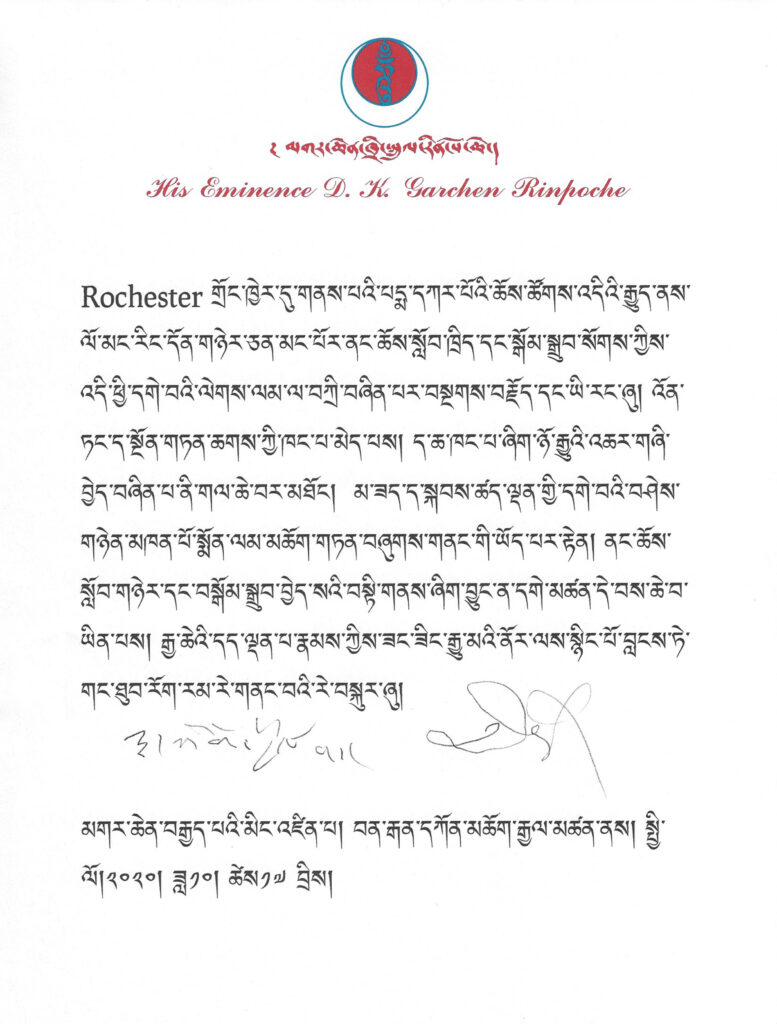 His Eminence D. K. Garchen Rinpoche
Rochester གྲོང་ཁྱེར་དུ་གནས་པའི་པདྨ་དཀར་པོའི་ཆོས་ཚོགས་འདིའི་རྒྱུད་ནས་
ལོ་མང་རིང་དོན་གཉེར་ཅན་མང་པོར་ནང་ཆོས་སློབ་ཁྲིད་དང་སྒོམ་སྒྲུབ་སོགས་ཀྱིས་
འདི་ཕྱི་དགེ་བའི་ལེགས་ལམ་ལ་བཀྲི་བཞིན་པར་བསྔགས་བརྗོད་དང་ཡི་རང་ཞུ། འོན་
ཏང་ད་སྔོན་གཏན་ཆགས་ཀྱི་ཁང་པ་མེད་པས། ད་ཆ་ཁང་པ་ཞིག་ཉོ་རྒྱུའི་འཆར་གཞི་
བྱེད་བཞིན་པ་ནི་གལ་ཆེ་བར་མཐོང། མ་ཟད་ད་སྐབས་ཚད་ལྡན་གྱི་དགེ་བའི་བཤེས་
གཉེན་མཁན་པོ་སྨོན་ལམ་མཆོག་གཏན་བཞུགས་གནང་གི་ཡོད་པར་རྟེན། ནང་ཆོས་
སློབ་གཉེར་དང་བསྒོམ་སྒྲུབ་བྱེད་སའི་བསྟི་གནས་ཞིག་བྱུང་ན་དགེ་མཚན་དེ་བས་ཆེ་བ་
ཡིན་པས། རྒྱ་ཆེའི་དད་ལྡན་པ་རྣམས་ཀྱིས་ཟང་ཟིང་རྒྱུ་མའི་ནོར་ལས་སྙིང་པོ་བླངས་ཏེ་
གང་ཐུབ་རོག་རམ་རེ་གནང་བའི་རེ་བསྐུར་ཞུ།
མགར་ཆེན་བརྒྱད་པའི་མིང་འཛིན་པ། བན་རྒན་དཀོན་མཆོག་རྒྱལ་མཚན་ནས། སྤྱི་
ལོ།༢༠༢༠། ཟླ༡༠། ཚེས༡༧ བྲིས།